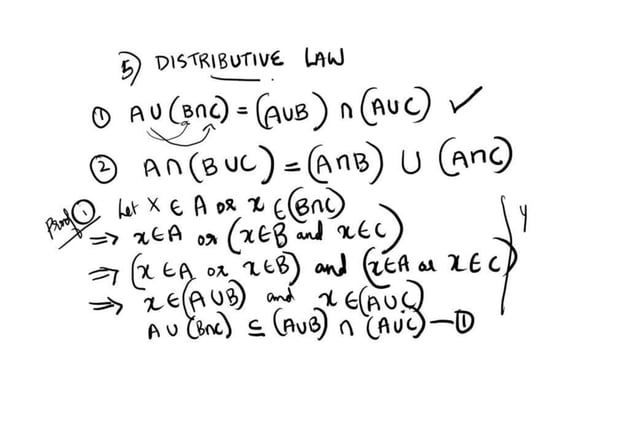 5) DISTRIBUTIVE LAW
① A ∪ (B∩C) = (A∪B) ∩ (A∪C) ✓
② A ∩ (B ∪ C) = (A∩B) ∪ (A∩C)
Proof ① Let X ∈ A or x ∈ (B∩C)
⇒ x∈A or (x∈B and x∈C) y
⇒ (x ∈ A or x∈B) and (x∈A or x∈C)
⇒ x∈(A∪B) and x∈(A∪C)
A∪(B∩C) ⊆ (A∪B) ∩ (A∪C) — ①